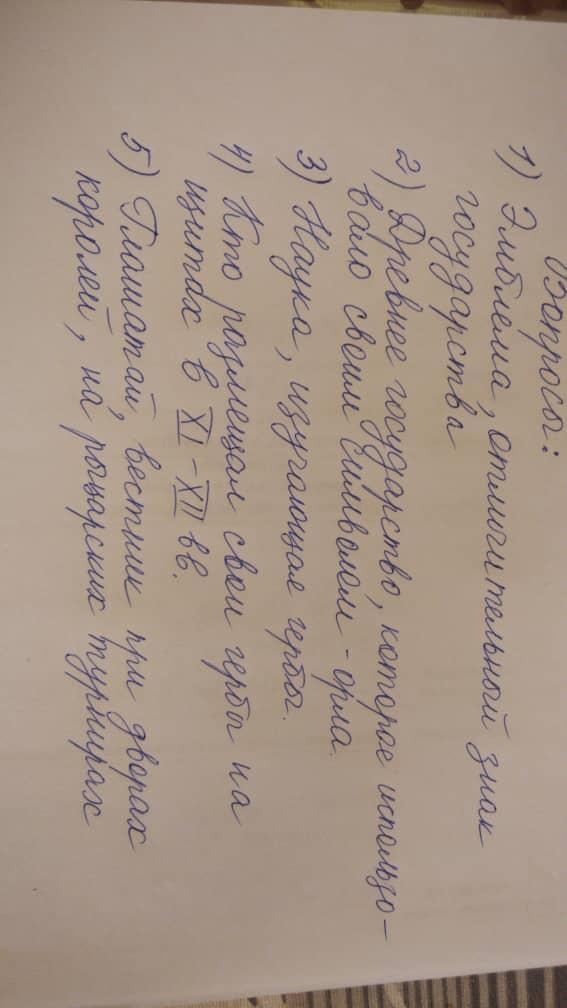 Вопросы:
1) Эмблема, отличительной знак
государства
2) Древнее государство, которое использо-
вало своим символом - орла.
3) Наука, изучающая гербы.
4) Кто размещал свои гербы на
щитах в XI - XII вв.
5) Глашатай, вестник при дворах
королей, на рыцарских турнирах